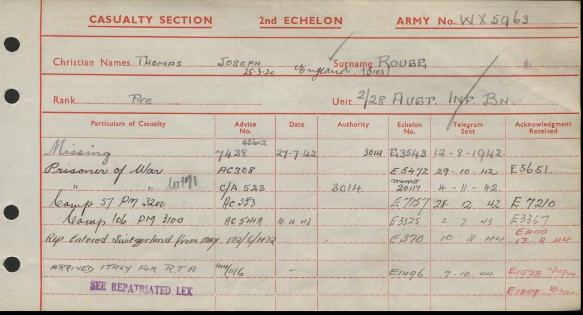 CASUALTY SECTION 2nd ECHELON ARMY No. WX5963
Christian Names THOMAS JOSEPH Surname ROUSE
25-3-20 England
Rank PTE Unit 2/28 AUST. INF. BN.
Particulars of Casualty Advice No. Date Authority Echelon No. Telegram Sent Acknowledgment Received
45612
Missing 7438 27-7-42 3014 E3543 12-8-1942
Prisoner of War AC308 E5472 29-10-42 E5651.
" " C/A 523 3014 memo 20117 4-11-42
Camp 57 PM 3200 AC353 E7157 28 12 42 E7210
Camp 106 PM 3100 AC544A E3325 2 7 43 E3367
Rep Entered Switzerland from Italy E370 10-8-44 E400 12-8-44
ARRIVED ITALY FOR R.T.A - E1496 7-10-44 E1528
SEE REPATRIATED LEX